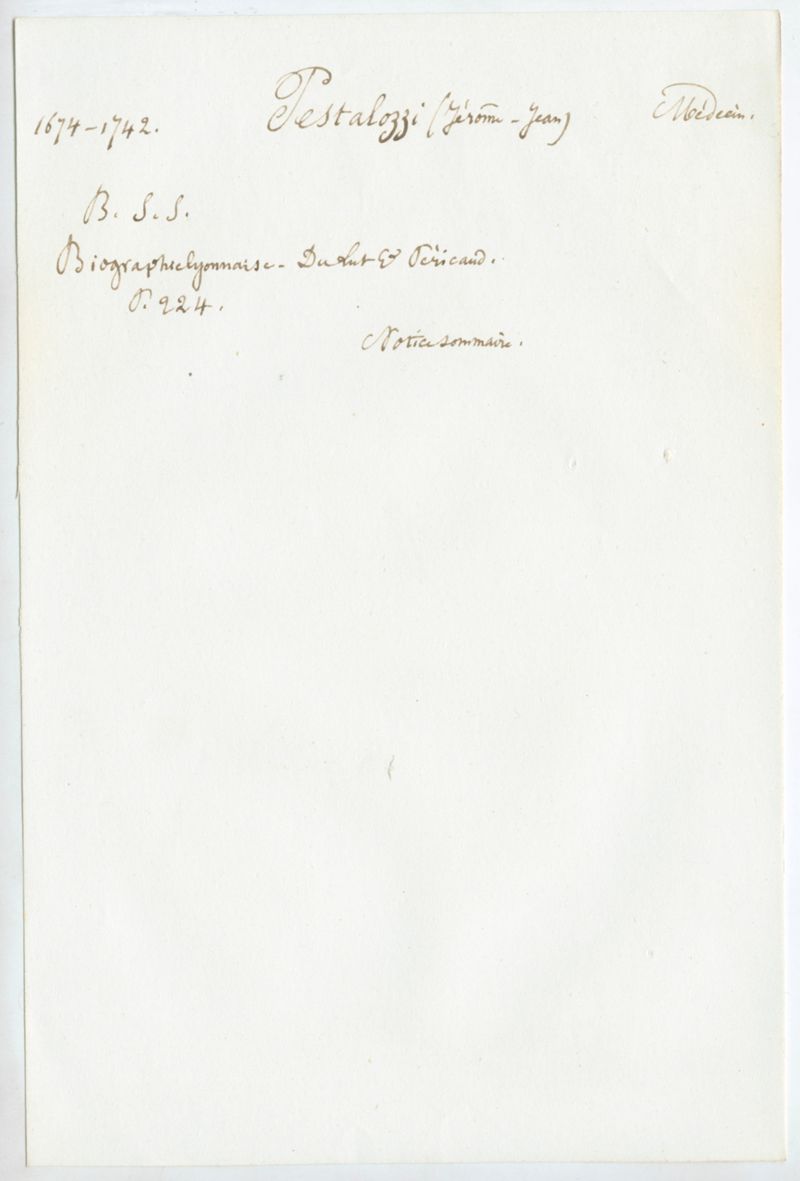 1674-1742. Pestalozzi (Jérôme-Jean) Médecin.
B. S. S.
Biographie lyonnaise - Du Lut & Péricaud.
P. 224.
Notice sommaire.